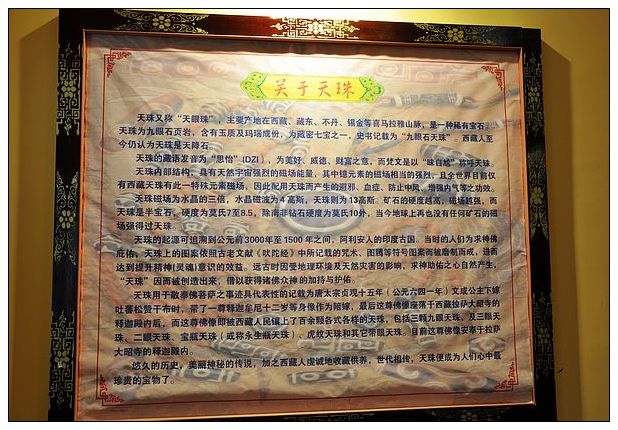 关于天珠
天珠又称“天眼珠”，主要产地在西藏、藏东、不丹、锡金等喜马拉雅山脉，是一种稀有宝石。
天珠为九眼石页岩，含有玉质及玛瑙成份，为藏密七宝之一，史书记载为“九眼石天珠”。西藏人至
今仍认为天珠是天降石。
天珠的藏语发音为“思怡”(DZI)，为美好、威德、财富之意，而梵文是以“昧自尬”称呼天珠。
天珠内部结构，具有天然宇宙强烈的磁场能量，其中镱元素的磁场相当的强烈，且全世界目前仅
有西藏天珠有此一特殊元素磁场，因此配用天珠而产生的避邪、血症、防止中风、增强内气等之功效。
天珠磁场为水晶的三倍，水晶磁波为4高斯，天珠则为13高斯。矿石的硬度越高，磁场越强，而
天珠是半宝石，硬度为莫氏7至8.5，除南非钻石硬度为莫氏10外，当今地球上再也没有任何矿石的磁
场强得过天珠。
天珠的起源可追溯到公元前3000年至1500年之间，阿利安人的印度古国。当时的人们为求神佛
庇佑，天珠上的图案依照古老文献《吠陀经》中所记载的咒术、图腾等符号图案而被磨制而成，进而
达到提升精神(灵魂)意识的效益。远古时因受地理环境及天然灾害的影响，求神助佑之心自然产生，
“天珠”因而被创造出来，借以获得诸佛众神的加持与护佑。
天珠用于敬奉佛菩萨之事迹具代表性的记载为唐太宗贞观十五年（公元六四一年）文成公主下嫁
吐蕃松赞干布时，带了一尊释迦牟尼十二岁等身像作为陪嫁，最后这尊佛像座落于西藏拉萨大昭寺的
释迦殿内后，而这尊佛像即被西藏人民镶上了百余颗各式各样的天珠，包括三颗九眼天珠、及三眼天
珠、二眼天珠、宝瓶天珠（或称永生瓶天珠）、虎纹天珠和其它带眼天珠。目前这尊佛像安奉于拉萨
大昭寺的释迦殿内。
悠久的历史，美丽神秘的传说，加之西藏人虔诚地收藏供养，世代相传，天珠便成为人们心中最
珍贵的宝物了。